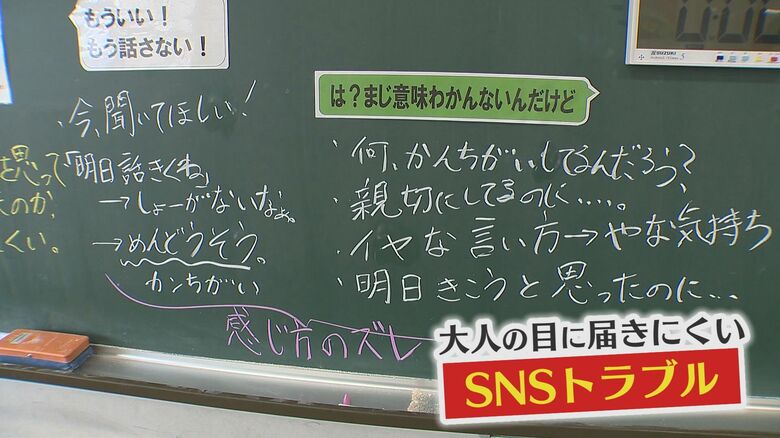 もういい！
もう話さない！
・今、聞いてほしい！
と思って
のか、
くい。
「明日話きくね」
→しょーがないなぁ。
→めんどうそう。
カンちがい
感じ方のズレ
SUZUKI
は？まじ意味わかんないんだけど
・何、かんちがいしてるんだろう？
・親切にしてるのに……。
・イヤな言い方→やな気持ち
・明日きこうと思ったのに…
大人の目に届きにくい
SNSトラブル